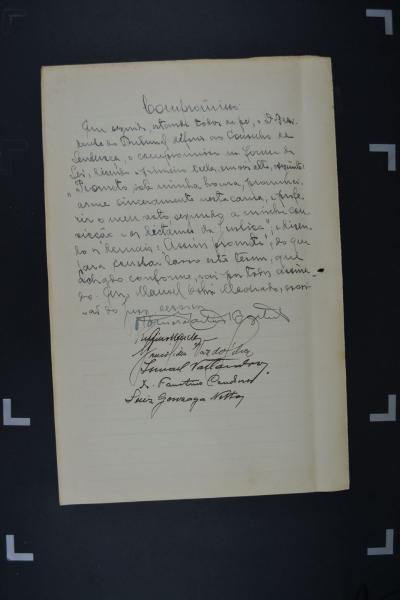 Compromisso
Em seguida, estando todos de pé, o Dr. Presi-
dente do Tribunal deferiu ao Conselho de
Sentença, o compromisso na forma da
Lei, dizendo o primeiro , em voz alta, seguinte:
"Prometto sob minha honra, pronunci-
ar-me sinceramente nesta causa, e profe-
rir o meu voto, segundo a minha con-
vicção e os dictames da justiça", e dizen-
do os demais: Assim prometto; do que
para constar lavro este termo, que
achado conforme, vai por todos assina-
do. Eu, Manuel Mello Machado, escri-
vão do jury,


Ismael
F. Faustino Cardoso
Luiz Gonzaga Netto